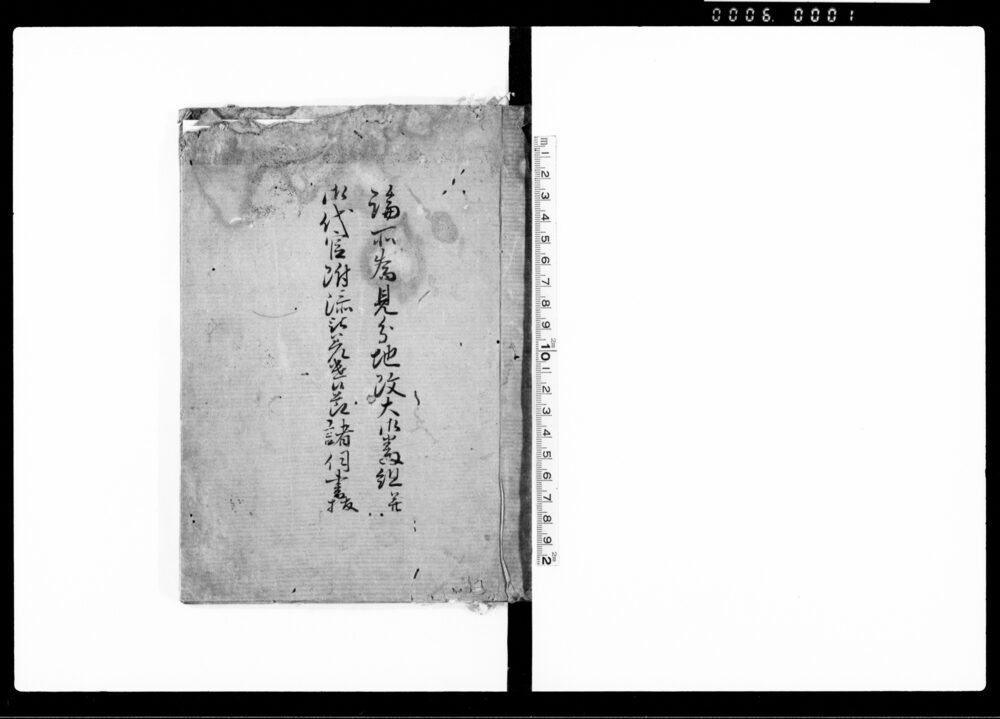 0006. 0001
論所為見分地改大御番組并
御代官附添被差遣候節諸伺書抜
m 1 2 3 4 5 6 7 8 9 10 1 2 3 4 5 6 7 8 9 2